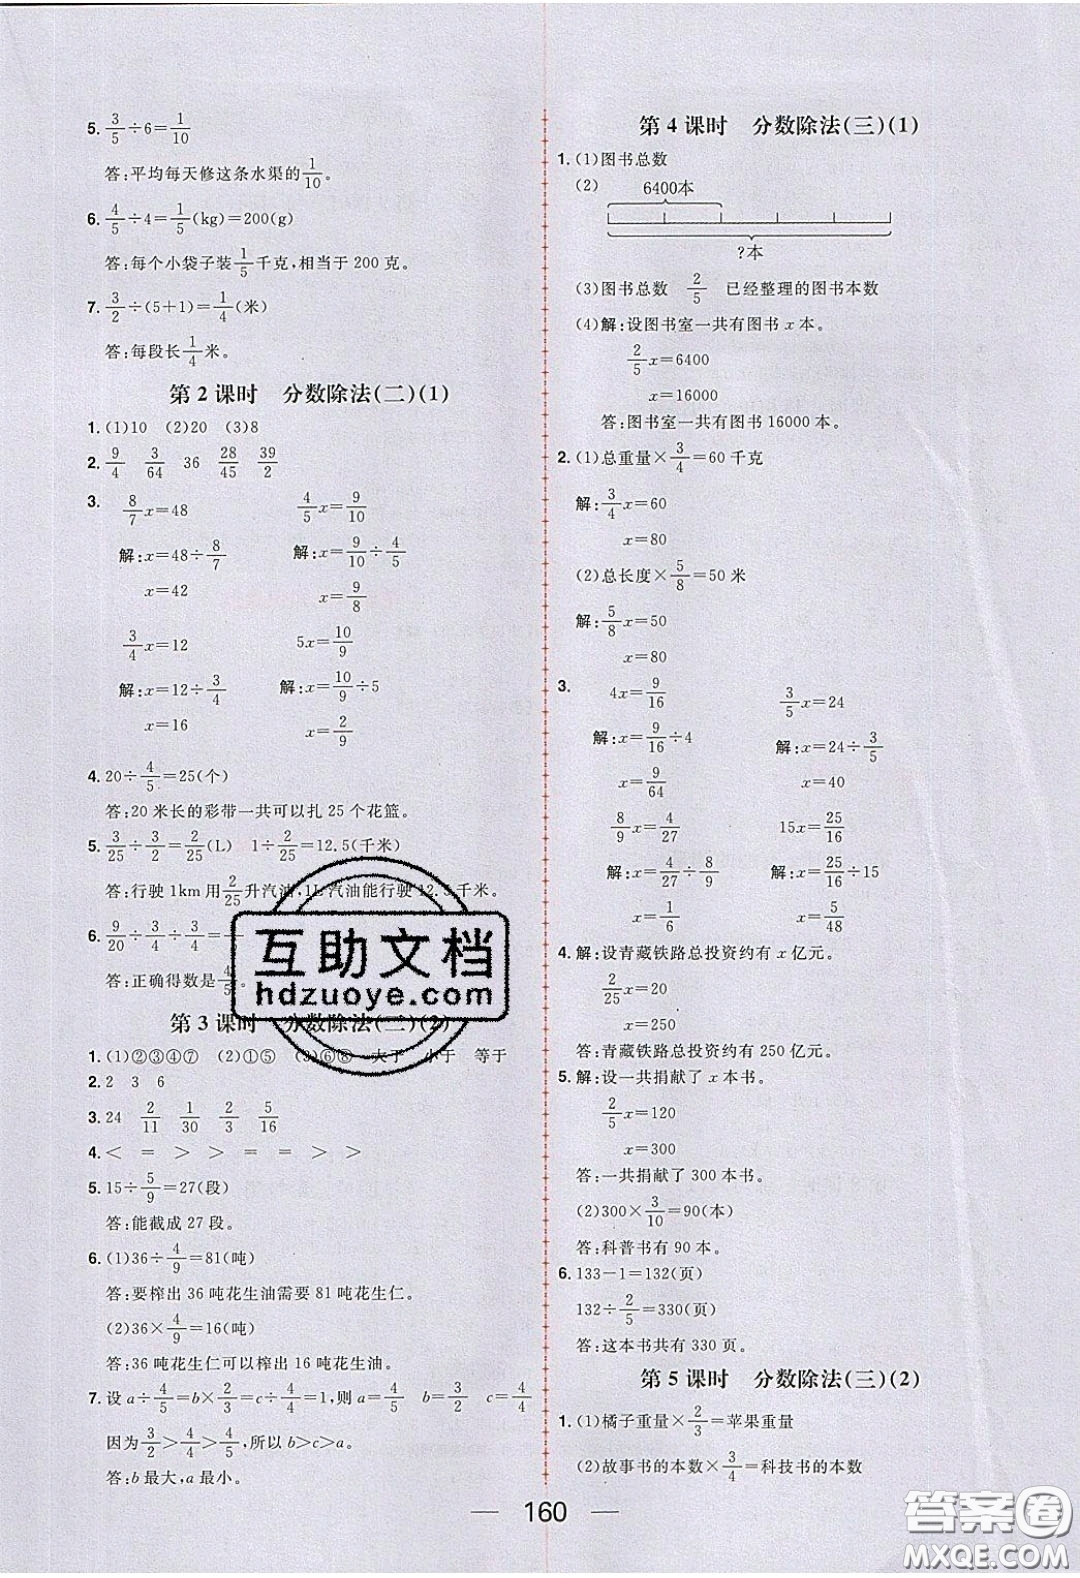 5. 3/5÷6=1/10
答:平均每天修这条水渠的1/10。
6. 4/5÷4=1/5(kg)=200(g)
答:每个小袋子装1/5千克,相当于 200 克。
7. 3/2÷(5+1)=1/4(米)
答:每段长1/4米。
第 2 课时 分数除法(二)(1)
1. (1)10 (2)20 (3)8
2. 9/4 3/64 36 28/45 39/2
3. 8/7x=48 4/5x=9/10
解:x=48÷8/7 解:x=9/10÷4/5
x=42 x=9/8
3/4x=12 5x=10/9
解:x=12÷3/4 解:x=10/9÷5
x=16 x=2/9
4. 20÷4/5=25(个)
答:20 米长的彩带一共可以扎 25 个花篮。
5. 3/25÷3/2=2/25(L) 1÷2/25=12.5(千米)
答:行驶 1km 用2/25升汽油,1L 汽油能行驶 12.5 千米。
6. 9/20÷3/4÷3/4=
答:正确得数是4/5。
第 3 课时 分数除法(二)(2)
1. (1)②③④⑦ (2)①⑤ (3)⑥⑧ 大于 小于 等于
2. 2 3 6
3. 24 2/11 1/30 2/3 5/16
4. < = > > > >
5. 15÷5/9=27(段)
答:能截成 27 段。
6. (1)36÷4/9=81(吨)
答:要榨出 36 吨花生油需要 81 吨花生仁。
(2)36×4/9=16(吨)
答:36 吨花生仁可以榨出 16 吨花生油。
7. 设 a÷4/5=b×2/3=c÷4/4=1,则 a=4/5 b=3/2 c=4/4
因为3/2>4/4>4/5,所以 b>c>a。
答:b 最大,a 最小。
第 4 课时 分数除法(三)(1)
1. (1)图书总数
(2) 6400本
?本
(3)图书总数 2/5 已经整理的图书本数
(4)解:设图书室一共有图书 x 本。
2/5x=6400
x=16000
答:图书室一共有图书 16000 本。
2. (1)总重量×3/4=60 千克
解:3/4x=60
x=80
(2)总长度×5/8=50 米
解:5/8x=50
x=80
3. 4x=9/16 3/5x=24
解:x=9/16÷4 解:x=24÷3/5
x=9/64 x=40
8/9x=4/27 15x=25/16
解:x=4/27÷8/9 解:x=25/16÷15
x=1/6 x=5/48
4. 解:设青藏铁路总投资约有 x 亿元。
2/25x=20
x=250
答:青藏铁路总投资约有 250 亿元。
5. 解:设一共捐献了 x 本书。
2/5x=120
x=300
答:一共捐献了 300 本书。
(2)300×3/10=90(本)
答:科普书有 90 本。
6. 133-1=132(页)
132÷2/5=330(页)
答:这本书共有 330 页。
第 5 课时 分数除法(三)(2)
1. (1)橘子重量×2/3=苹果重量
(2)故事书的本数×3/4=科技书的本数
160
互助文档
hdzuoye.com
答案卷
MXQE.COM